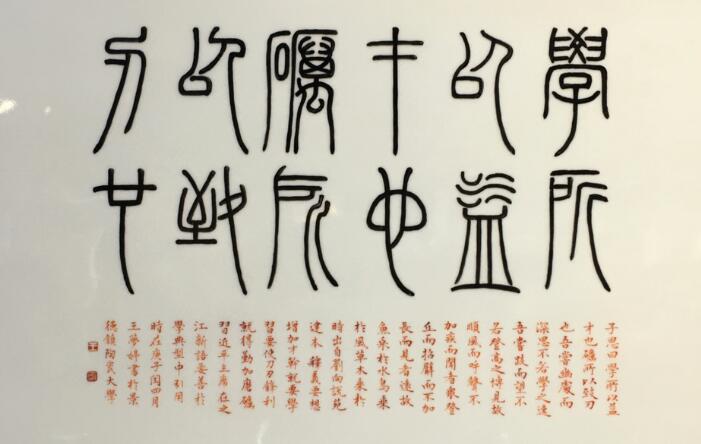 學所
以益
才也
礪所
以致
刃也
子思曰學所以益
才也礪所以致刃
也吾嘗幽處而
深思不若學之速
吾嘗跂而望不
若登高之博見故
順風而呼聲不
加疾而聞者眾登
丘而招臂而不加
長而見者遠故
魚乘於水鳥乘
於風草木乘於
時出自劉向說苑
建本 釋義要想
增加才幹就要學
習要使刀刃鋒利
就得勤加磨礪
習近平主席在之
江新語要善於
學典型中引用
時在庚子閏四月
王夢書於景
德鎮陶瓷大學